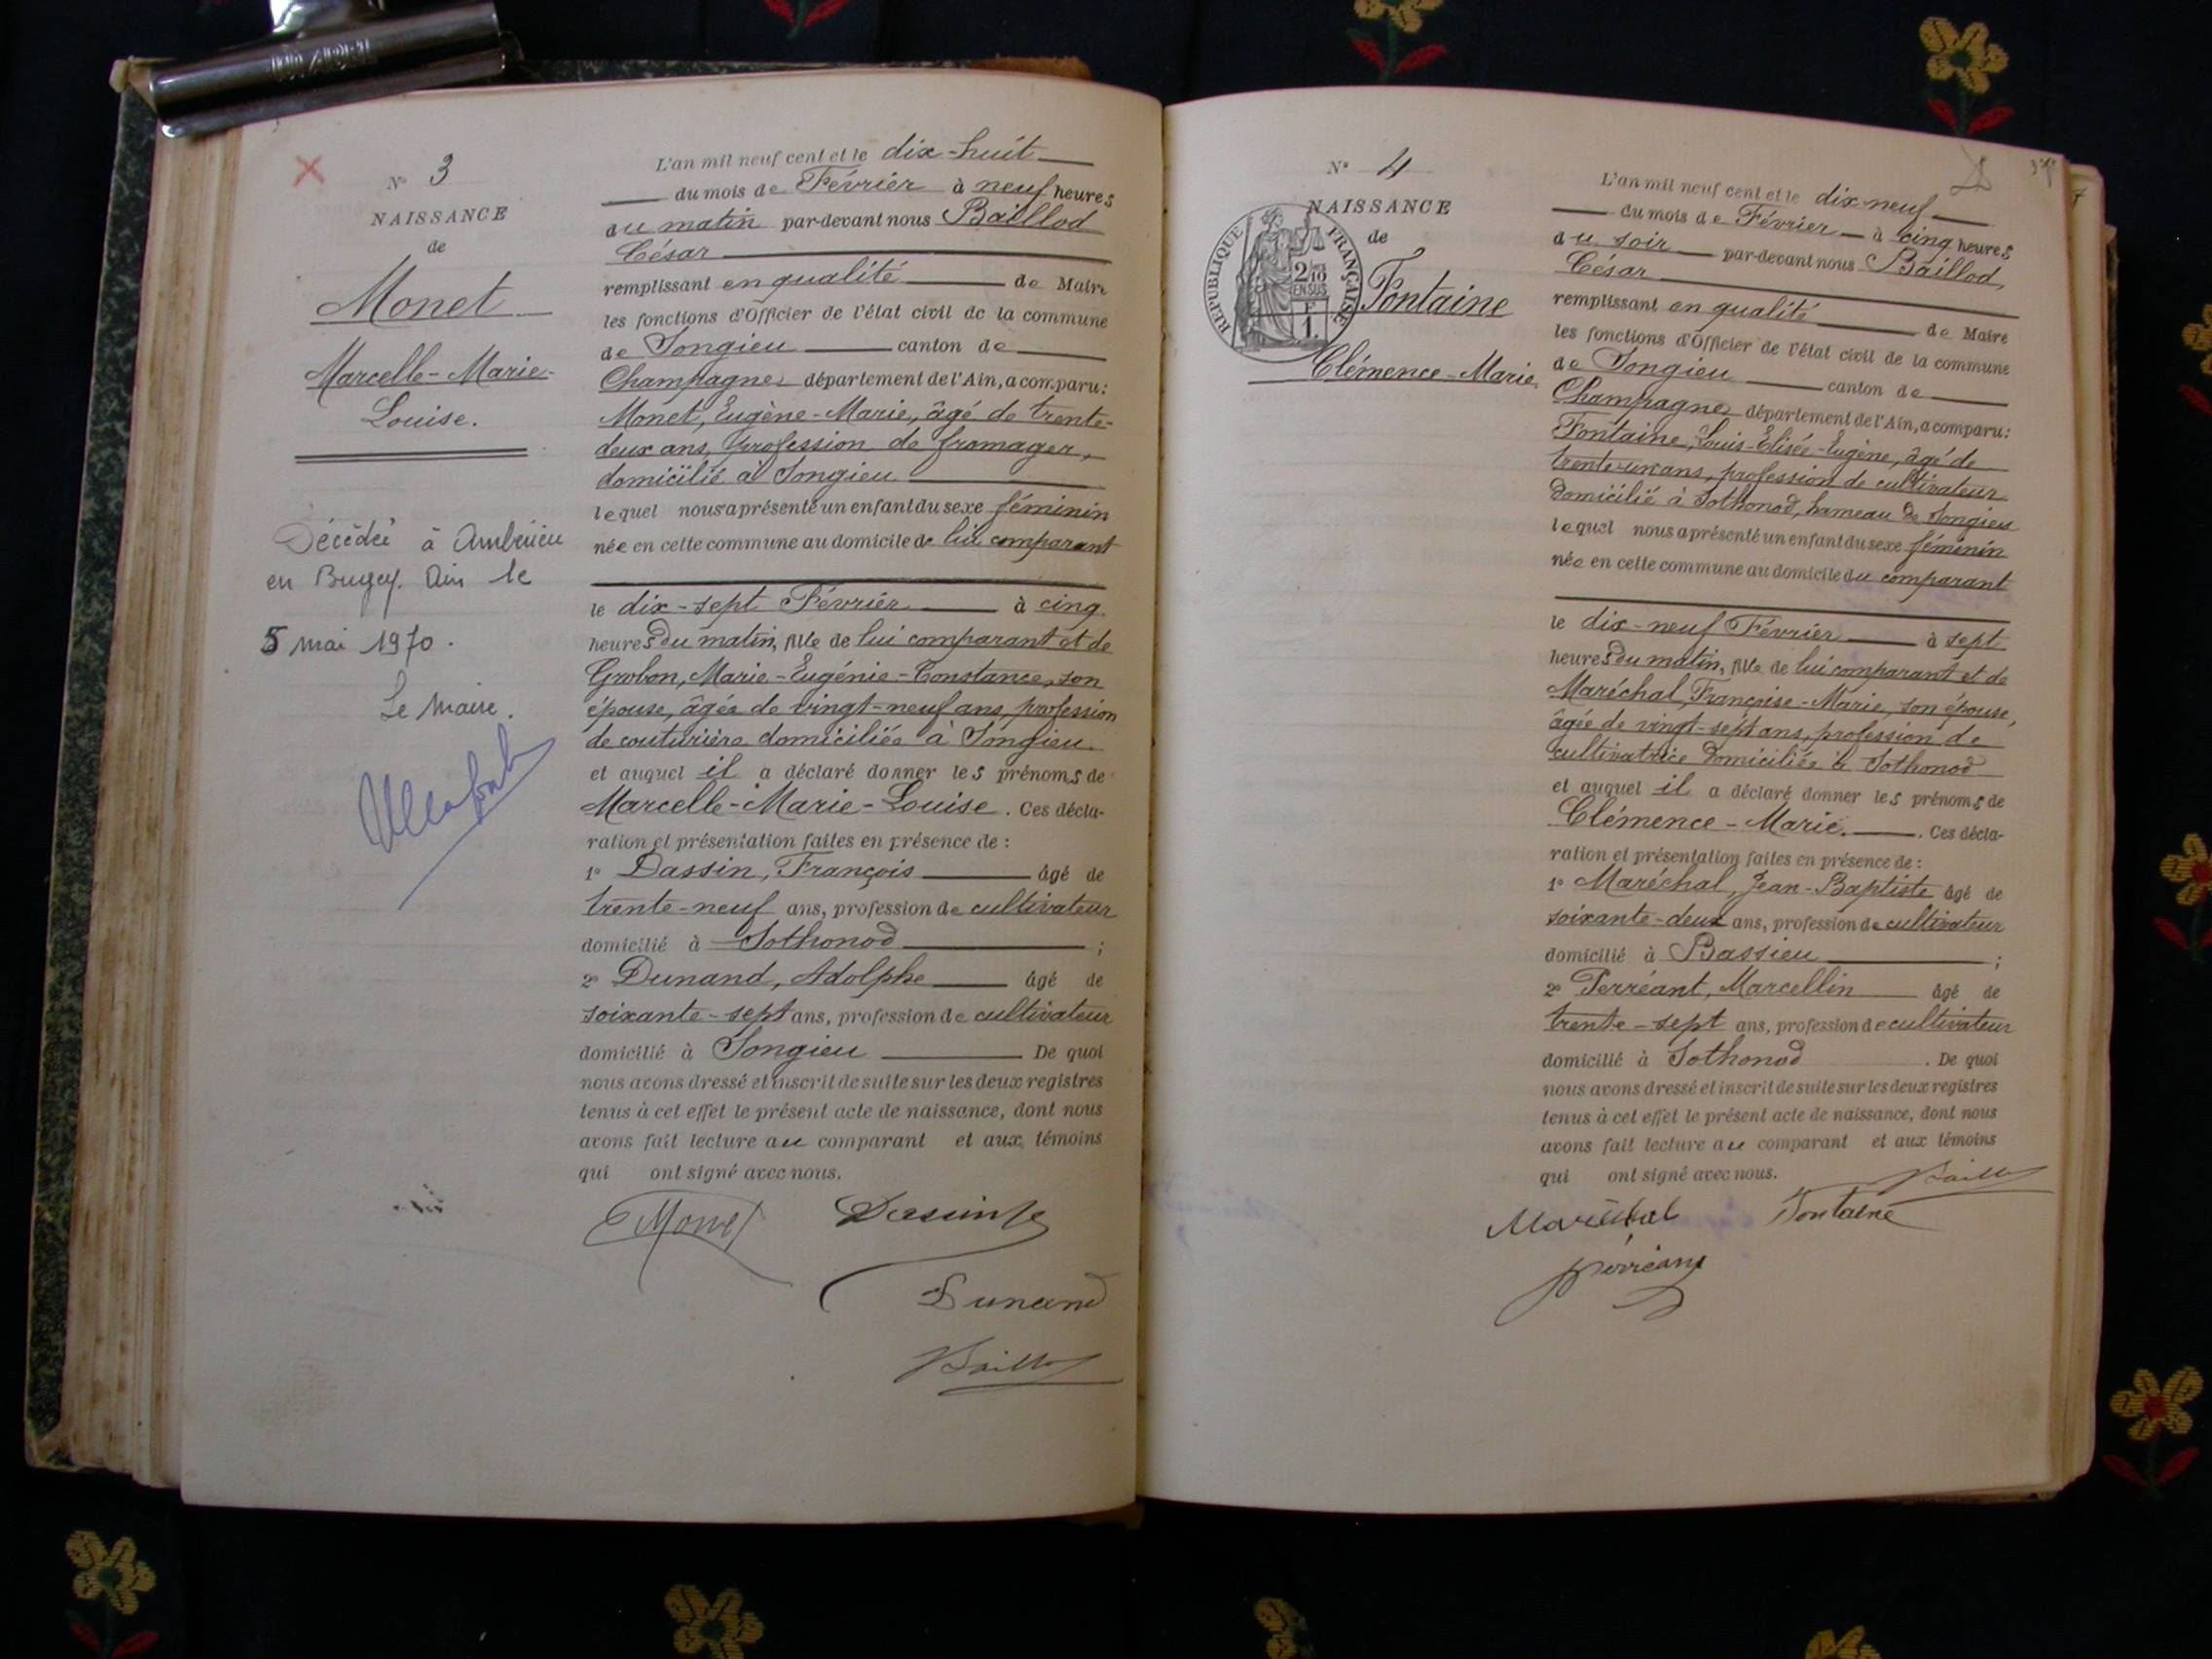 N° 3
NAISSANCE
de
Monet
Marcelle-Marie-
Louise.
Décédée à Ambérieu
en Bugey. Ain le
5 mai 1970.
Le Maire.
L'an mil neuf cent et le dix-huit
du mois de Février à neuf heures
du matin par-devant nous Baillod
César
remplissant en qualité de Maire
les fonctions d'Officier de l'état civil de la commune
de Songieu canton de
Champagne département de l'Ain, a comparu:
Monet, Eugène-Marie, âgé de trente-
deux ans, profession de fromager,
domicilié à Songieu
lequel nous a présenté un enfant du sexe féminin
née en cette commune au domicile de lui comparant
le dix-sept Février à cinq
heures du matin, fille de lui comparant et de
Grobon, Marie-Eugénie-Constance, son
épouse, âgée de vingt-neuf ans, profession
de couturière domiciliée à Songieu.
et auquel il a déclaré donner les prénoms de
Marcelle-Marie-Louise. Ces décla-
ration et présentation faites en présence de :
1° Dassin, François âgé de
trente-neuf ans, profession de cultivateur
domicilié à Sothonod ;
2° Dunand, Adolphe âgé de
soixante-sept ans, profession de cultivateur
domicilié à Songieu De quoi
nous avons dressé et inscrit de suite sur les deux registres
tenus à cet effet le présent acte de naissance, dont nous
avons fait lecture au comparant et aux témoins
qui ont signé avec nous.
Monet
Dunand
Baillod
N° 4
NAISSANCE
de
REPUBLIQUE FRANÇAISE
2/10
EN SUS
F
1.
Fontaine
Clémence-Marie
L'an mil neuf cent et le dix neuf
du mois de Février à cinq heures
du soir par-devant nous Baillod,
César
remplissant en qualité de Maire
les fonctions d'Officier de l'état civil de la commune
de Songieu canton de
Champagne département de l'Ain, a comparu:
Fontaine, Louis-Elisée-Eugène, âgé de
trente-un ans, profession de cultivateur
domicilié à Sothonod, hameau de Songieu
lequel nous a présenté un enfant du sexe féminin
née en cette commune au domicile du comparant
le dix-neuf Février à sept
heures du matin, fille de lui comparant et de
Maréchal, Françoise-Marie, son épouse,
âgée de vingt-sept ans, profession de
cultivatrice domiciliée à Sothonod
et auquel il a déclaré donner les prénoms de
Clémence-Marie. Ces décla-
ration et présentation faites en présence de :
1° Maréchal, Jean-Baptiste âgé de
soixante-deux ans, profession de cultivateur
domicilié à Bassieu ;
2° Perréant, Marcellin âgé de
trente-sept ans, profession de cultivateur
domicilié à Sothonod . De quoi
nous avons dressé et inscrit de suite sur les deux registres
tenus à cet effet le présent acte de naissance, dont nous
avons fait lecture au comparant et aux témoins
qui ont signé avec nous.
Baillod
Maréchal Fontaine
Perréant